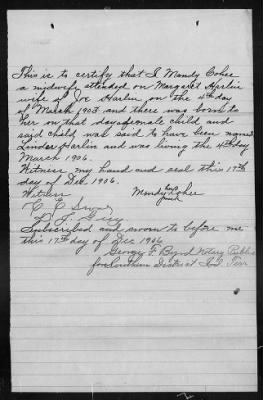 This is to certify that I Mandy Cohee
a midwife attended on Margaret Harlin
wife of Joe Harlin on the 4th day
of March 1903 and there was born to
her on that day a female child and
said child was said to have been named
Linda Harlin and was living the 4th day
March 1906.
Witness my hand and seal this 17th
day of Dec. 1906.
Mandy Cohee
Witness
C. E.
Subscribed and sworn to before me
this 17th day of Dec 1906
George F. Byrd Notary Public
for Southern District Ind. Terr